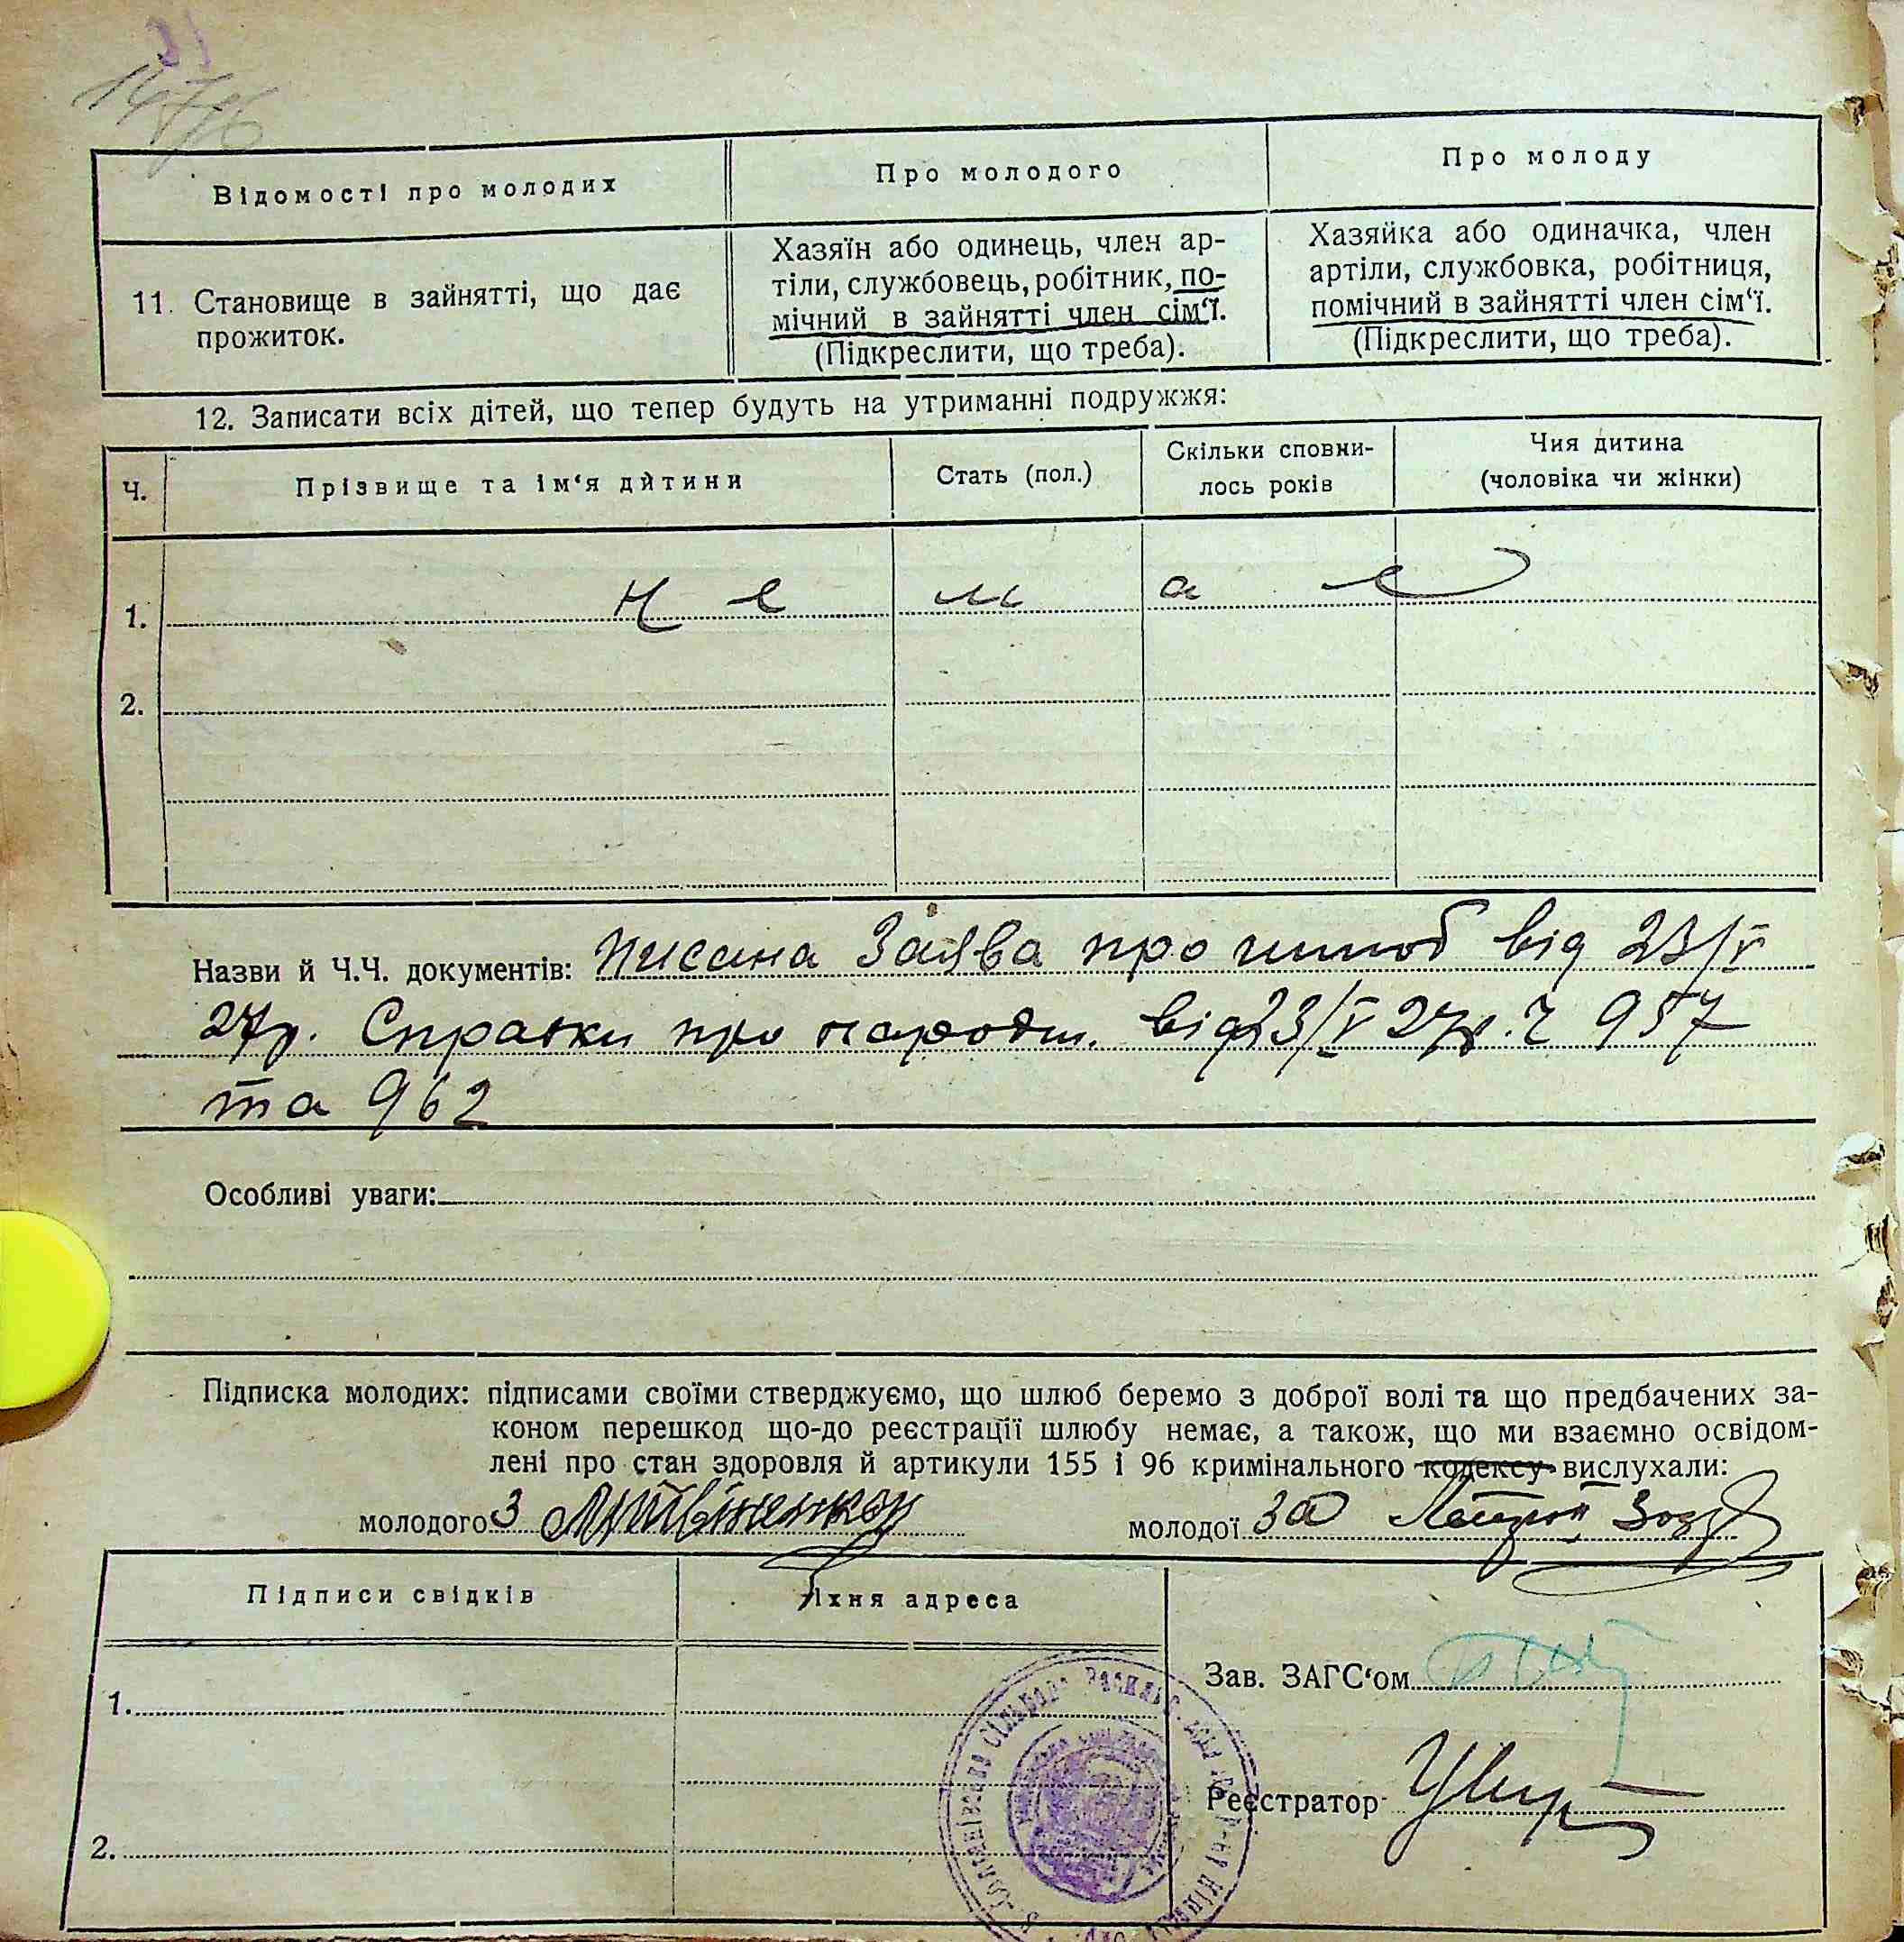 Відомості про молодих
Про молодого
Про молоду
11. Становище в зайнятті, що дає
прожиток.
Хазяїн або одинець, член ар-
тіли, службовець, робітник, по-
мічний в зайнятті член сім‘ї.
(Підкреслити, що треба).
Хазяйка або одиначка, член
артіли, службовка, робітниця,
помічний в зайнятті член сім‘ї.
(Підкреслити, що треба).
12. Записати всіх дітей, що тепер будуть на утриманні подружжя:
Ч.
Прізвище та ім‘я дитини
Стать (пол.)
Скільки сповни-
лось років
Чия дитина
(чоловіка чи жінки)
1. н е м а є
2.
Назви й Ч.Ч. документів: Писана Заява про шлюб від 23/V
27р. Справки про народж. від 23/V 27р. Ч 957
та 962
Особливі уваги:
Підписка молодих: підписами своїми стверджуємо, що шлюб беремо з доброї волі та що предбачених за-
коном перешкод що-до реєстрації шлюбу немає, а також, що ми взаємно освідом-
лені про стан здоровля й артикули 155 і 96 кримінального кодексу вислухали:
молодого З
молодої За
Підписи свідків
Їхня адреса
1.
2.
Зав. ЗАГС‘ом
Реєстратор